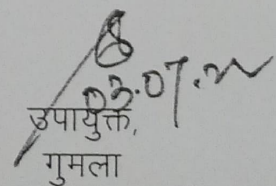 03.07.2
उपायुक्त,
गुमला